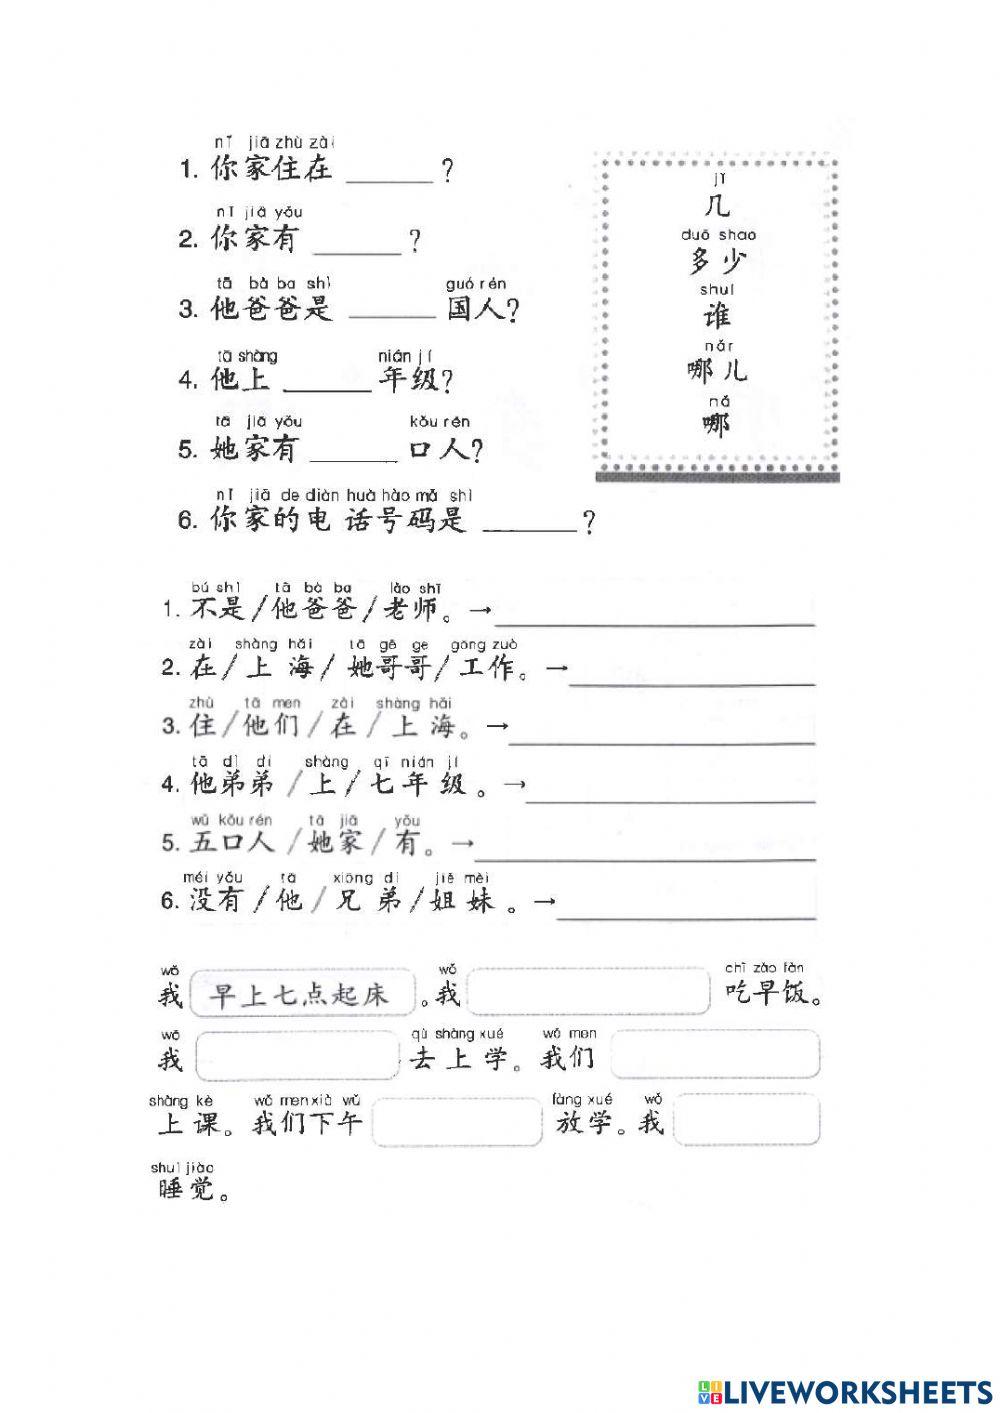 nǐ jiā zhù zài
1. 你家住在 ______ ?
nǐ jiā yǒu
2. 你家有 ______ ?
tā bà ba shì guó rén
3. 他爸爸是 ______ 国人?
tā shàng nián jí
4. 他上 ______ 年级?
tā jiā yǒu kǒu rén
5. 她家有 ______ 口人?
nǐ jiā de diàn huà hào mǎ shì
6. 你家的电话号码是 ______ ?
jǐ
几
duō shao
多少
shuí
谁
nǎr
哪儿
nǎ
哪
bú shì tā bà ba lǎo shī
1. 不是/他爸爸/老师。→
zài shàng hǎi tā gē ge gōng zuò
2. 在/上海/她哥哥/工作。→
zhù tā men zài shàng hǎi
3. 住/他们/在/上海。→
tā dì di shàng qī nián jí
4. 他弟弟/上/七年级。→
wǔ kǒu rén tā jiā yǒu
5. 五口人/她家/有。→
méi yǒu tā xiōng dì jiě mèi
6. 没有/他/兄弟/姐妹。→
wǒ wǒ chī zǎo fàn
我 早上七点起床 。我 吃早饭。
wǒ qù shàng xué wǒ men
我 去上学。我们
shàng kè wǒ men xià wǔ fàng xué wǒ
上课。我们下午 放学。我
shuì jiào
睡觉。
LIVE LIVEWORKSHEETS